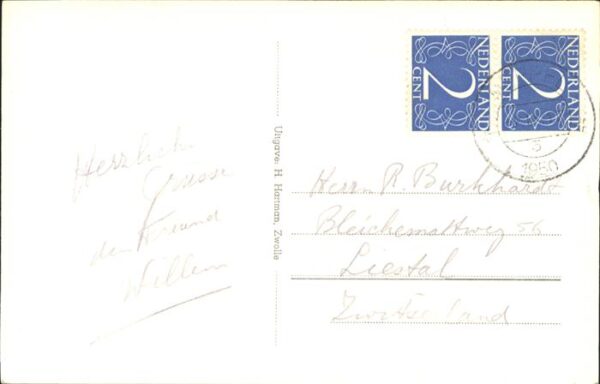 Herzliche
Grüsse
den Freund
Willem
Uitgave: H. Hartman, Zwolle
NEDERLAND
2
CENT
NEDERLAND
2
CENT
1950
Herrn R. Burkhardt
Bleichemattweg 56
Liestal
Zwitserland